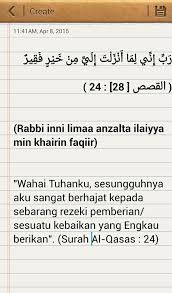 Create
11:41AM, Apr 8, 2015
رَبِّ إِنِّي لِمَا أَنْزَلْتَ إِلَيَّ مِنْ خَيْرٍ فَقِيرٌ
( القصص [28] : 24 )
(Rabbi inni limaa anzalta ilaiyya
min khairin faqiir)
"Wahai Tuhanku, sesungguhnya
aku sangat berhajat kepada
sebarang rezeki pemberian/
sesuatu kebaikan yang Engkau
berikan". (Surah Al-Qasas : 24)